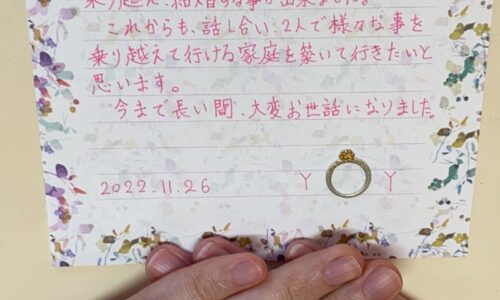 乗り越え、結婚する事が出来ました。
これからも、話し合い、2人で様々な事を
乗り越えて行ける家庭を築いて行きたいと
思います。
今まで長い間、大変お世話になりました。
2022.11.26 Y Y